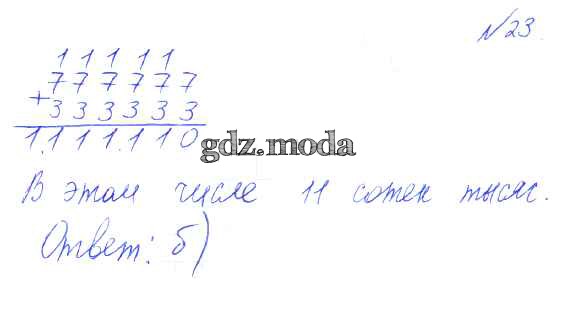 №23.
1 1 1 1 1
7 7 7 7 7 7
+ 3 3 3 3 3 3
1.1 1 1.1 1 0
gdz.moda
В этом числе 11 сотен тысяч.
Ответ: б)